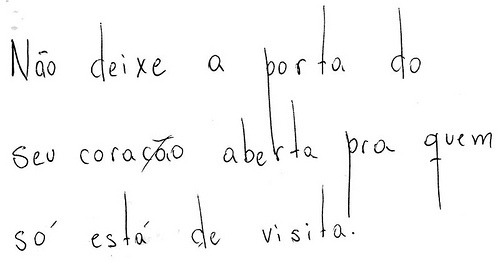 Não deixe a porta do
seu coração aberta pra quem
só está de visita.